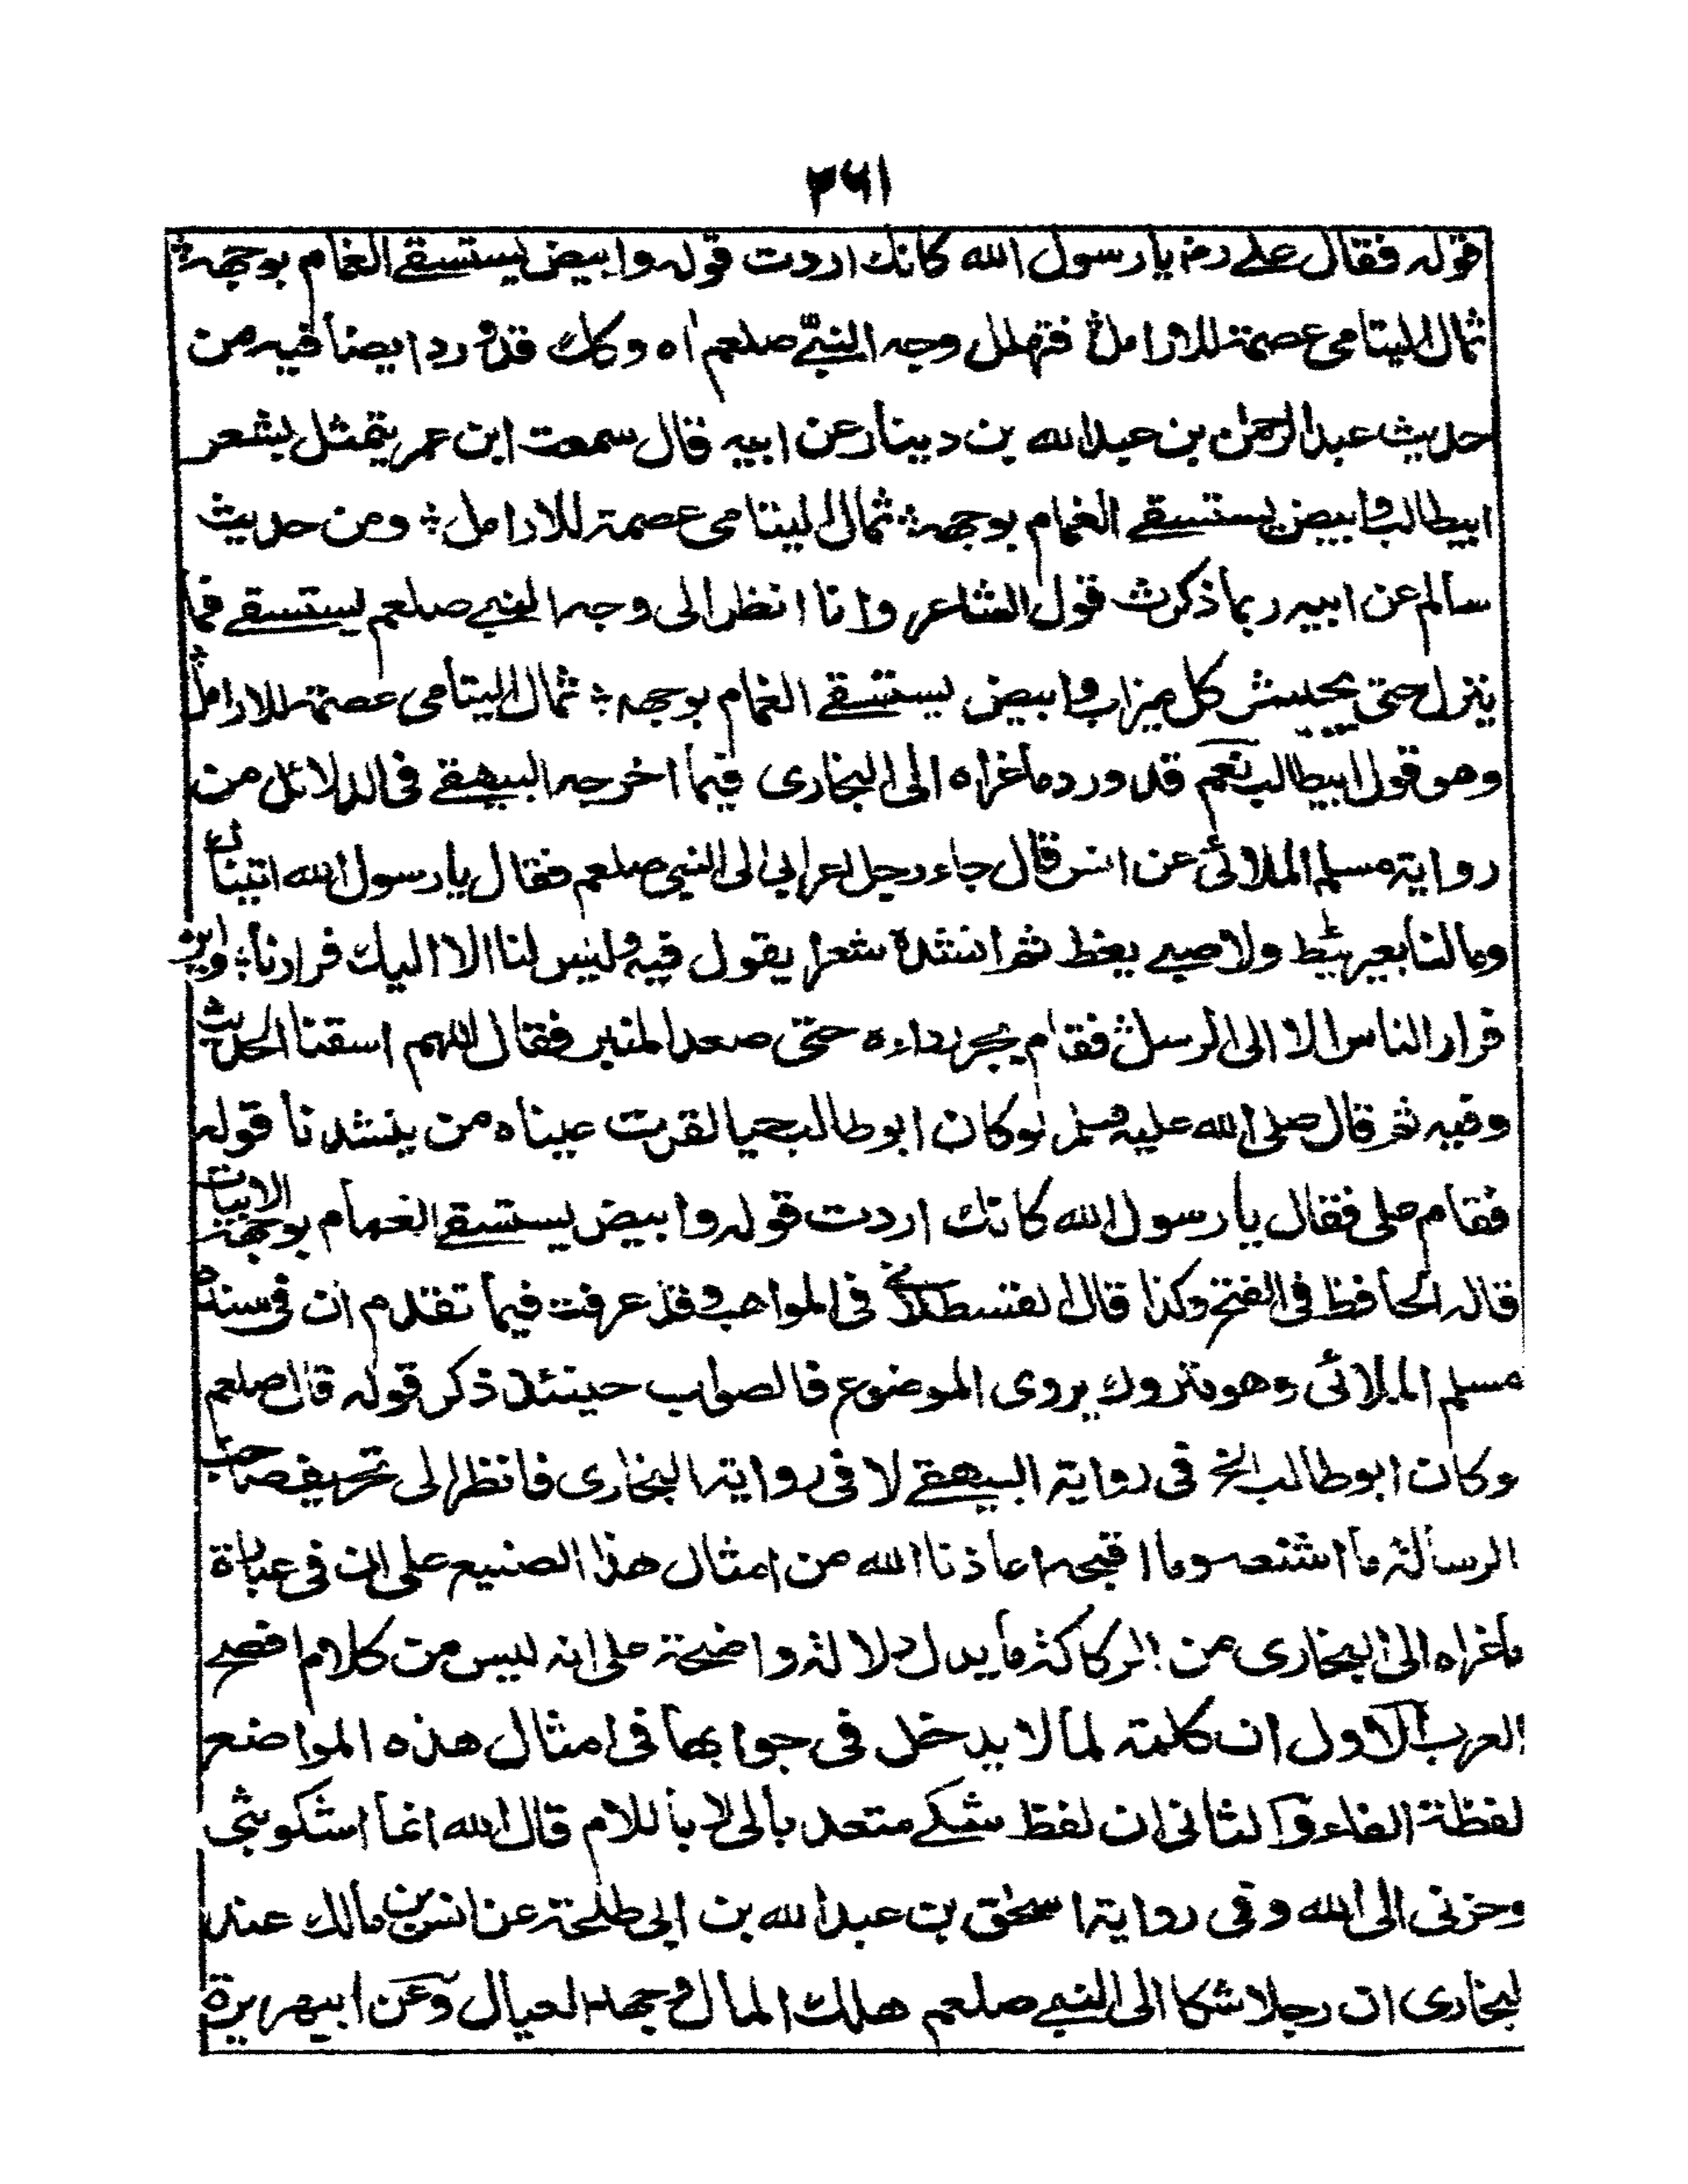 ٢٦١
قوله فقال على رض يا رسول الله كانك اردت قوله وابيض يستسقى الغمام بوجهه
ثمال اليتامى عصمة للارامل فتهلل وجه النبى صلعم اه وكك قد ورد ايضا فيه من
حديث عبد الرحمن بن عبد الله بن دينار عن ابيه قال سمعت ابن عمر يتمثل بشعر
ابيطالب وابيض يستسقى الغمام بوجهه ثمال اليتامى عصمة للارامل ومن حديث
سالم عن ابيه ربما ذكرت قول الشاعر وانا انظر الى وجه النبى صلعم يستسقى فما
ينزل حتى يجيش كل ميزاب وابيض يستسقى الغمام بوجهه ثمال اليتامى عصمة للارامل
وهو قول ابيطالب نعم قد ورد ما غزاه الى البخارى فيما اخرجه البيهقى فى الدلائل من
رواية مسلم الملائى عن انس قال جاء رجل اعرابى الى النبى صلعم فقال يا رسول الله اتيناك
وما لنا بعير يئط ولا صبى يغط ثم انشده شعرا يقول فيه وليس لنا الا اليك فرارنا واين
فرار الناس الا الى الرسل فقام يجر رداءه حتى صعد المنبر فقال اللهم اسقنا الحديث
وفيه ثم قال صلى الله عليه وسلم لو كان ابو طالب حيا لقرت عيناه من ينشدنا قوله
فقام على فقال يا رسول الله كانك اردت قوله وابيض يستسقى الغمام بوجهه الابيات
قاله الحافظ فى الفتح وكذا قال القسطلانى فى المواهب وقد عرفت فيما تقدم ان فى سنده
مسلم الملائى وهو متروك يروى الموضوع فالصواب حينئذ ذكر قوله قال صلعم
لو كان ابو طالب الخ فى رواية البيهقى لا فى رواية البخارى فانظر الى تحريف صاحب
الرسالة ما اشنعه وما اقبحه اعاذنا الله من امثال هذا الصنيع على ان فى عبارة
ما غزاه الى البخارى من الركاكة ما يدل دلالة واضحة على انه ليس من كلام افصح
العرب الاول ان كلمة لما لا يدخل فى جوابها فى امثال هذه المواضع
لفظة الفاء والثانى ان لفظ شكى متعد بالى لا باللام قال الله انما اشكو بثى
وحزنى الى الله وفى رواية اسحق بن عبد الله بن ابى طلحة عن انس بن مالك عند
البخارى ان رجلا شكا الى النبى صلعم هلاك المال وجهد العيال وعن ابيهريرة